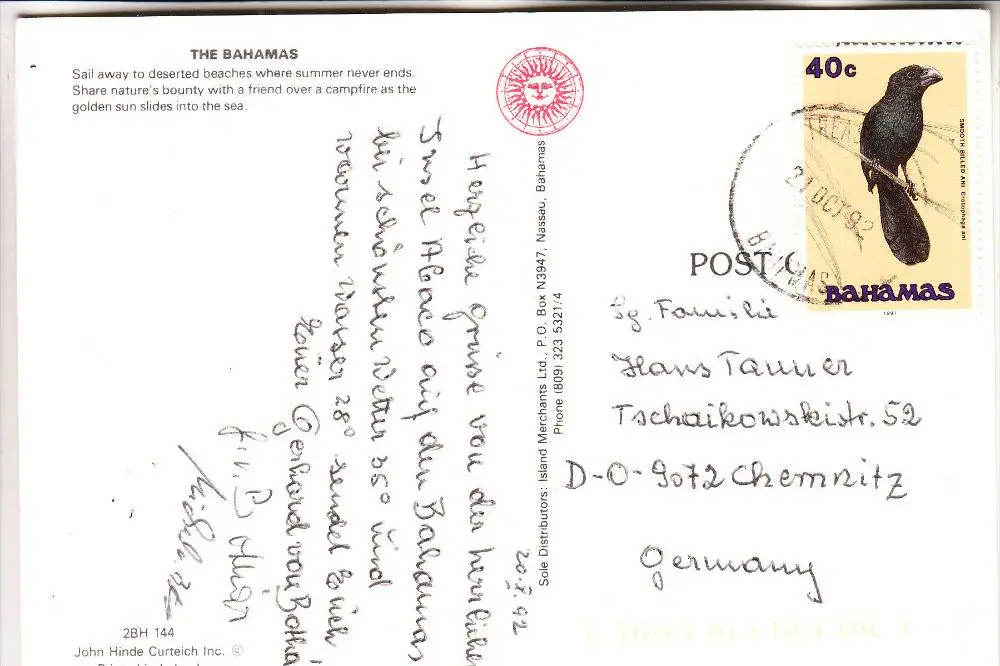 THE BAHAMAS
Sail away to deserted beaches where summer never ends.
Share nature's bounty with a friend over a campfire as the
golden sun slides into the sea.
20.X.92
Herzliche Grüsse von der herrlichen
Insel Abaco auf den Bahamas
bei schönstem Wetter 35° und
warmen Wasser 28° sendet Euch
Euer Gerhard von Botha
2BH 144
John Hinde Curteich Inc. ©
Sole Distributors: Island Merchants Ltd., P.O. Box N3947, Nassau, Bahamas
Phone (809) 323 5321/4
POST C
40c
SMOOTH BILLED ANI Crotophaga ani
BAHAMAS
1991
TREAS
21 OCT 92
BAHAMAS
Sg. Familie
Hans Tanner
Tschaikowskistr. 52
D-O-9072 Chemnitz
Germany